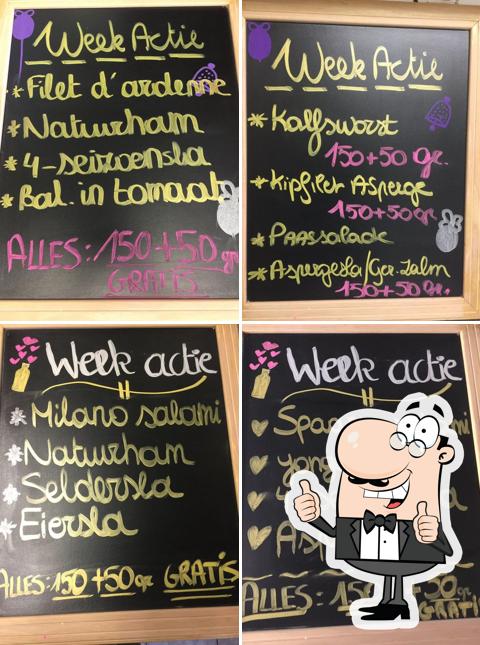 Week Actie
* Filet d'ardenne
* Natuurham
* 4-seizoensla
* Bal. in tomaat
ALLES: 150+50 gr
GRATIS
Week Actie
* Kalfsworst
150+50 gr.
* Kipfilet Asperge
150+50 gr.
* Paassalade
* Aspergesla/Ger. Zalm
150+50 gr.
Week actie
* Milano salami
* Natuurham
* Seldersla
* Eiersla
ALLES: 150+50 gr GRATIS
Week actie
ALLES:
GRATIS